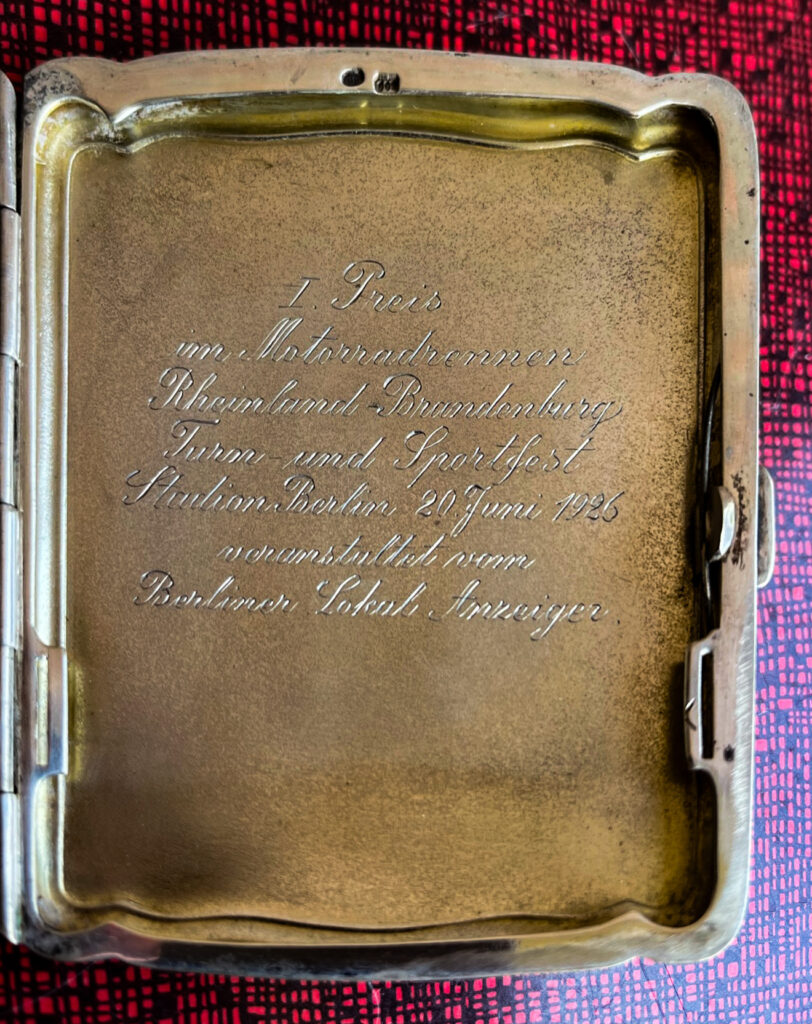 I. Preis
im Motorradrennen
Rheinland-Brandenburg
Turn- und Sportfest
Stadion Berlin 20. Juni 1926
veranstaltet vom
Berliner Lokal Anzeiger.